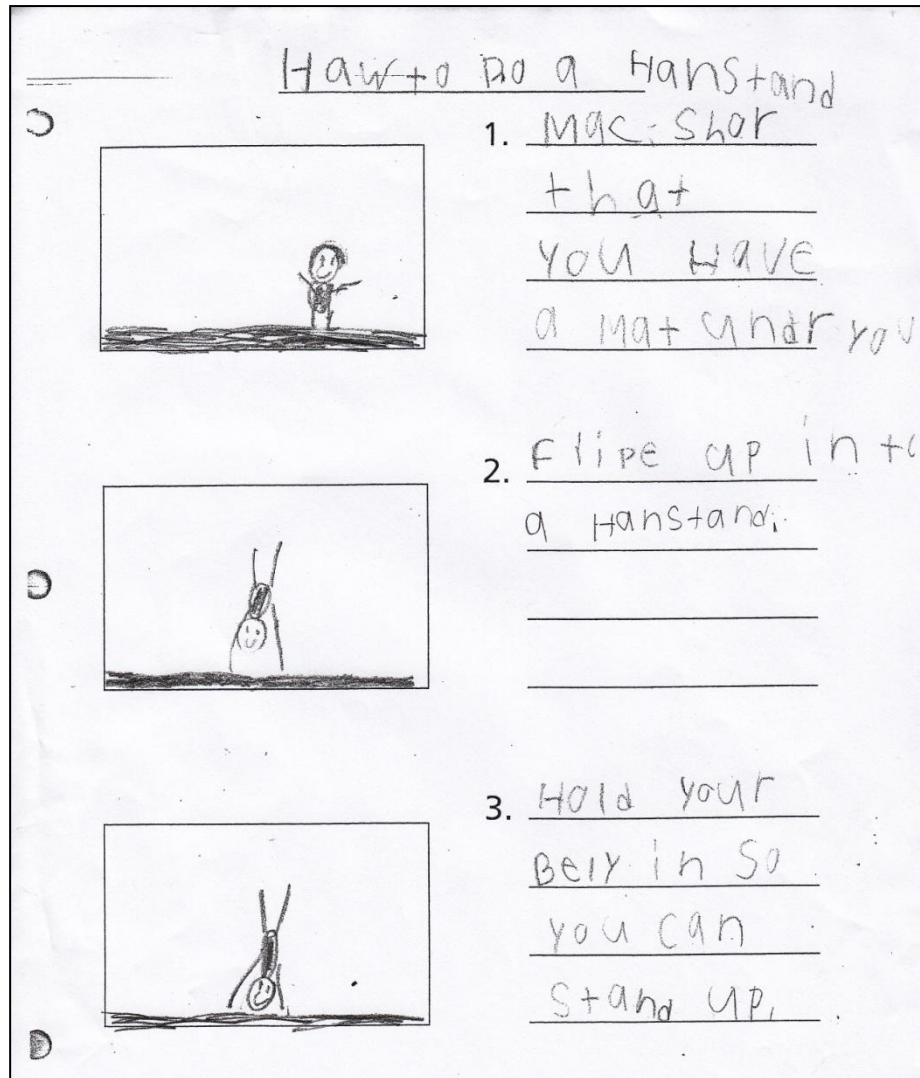 Haw to Do a Hanstand
1. Mac Shor
that
you Have
a Mat undr you
2. Flipe up in to
a Hanstand.
3. Hold your
Bely in So
you can
Stand up.